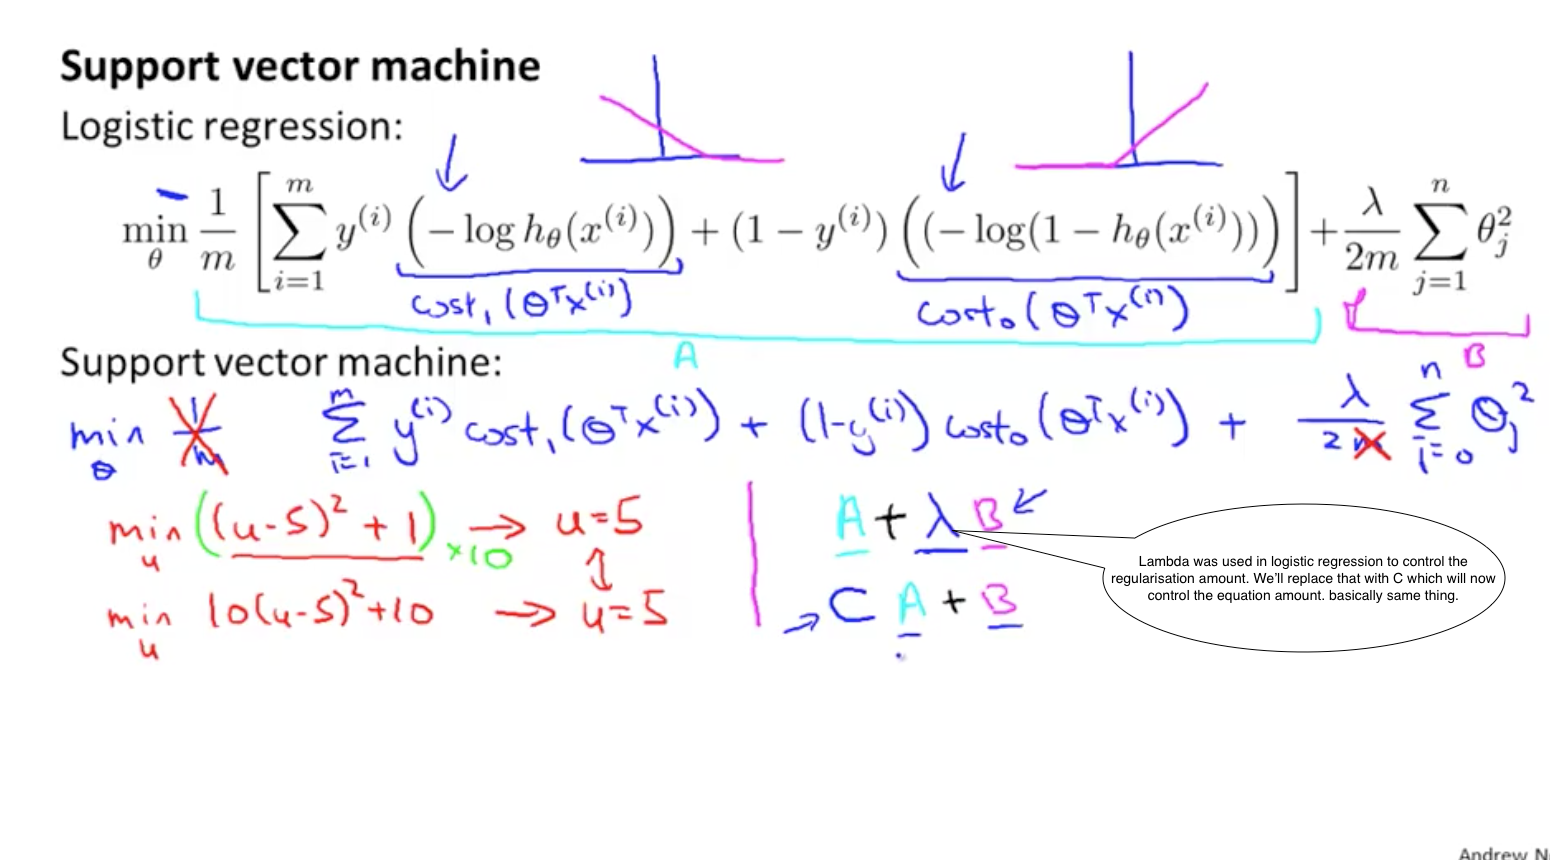 Support vector machine
Logistic regression:
min_θ 1/m [ ∑_{i=1}^{m} y^{(i)} (− log h_θ(x^{(i)})) + (1 − y^{(i)}) ((− log(1 − h_θ(x^{(i)}))) ] + λ/2m ∑_{j=1}^{n} θ_j^2
cost_1(θ^T x^{(i)}) cost_0(θ^T x^{(i)})
A B
Support vector machine:
min_θ 1/m ∑_{i=1}^{m} y^{(i)} cost_1(θ^T x^{(i)}) + (1-y^{(i)}) cost_0(θ^T x^{(i)}) + λ/2m ∑_{i=0}^{n} θ_j^2
min_u ((u-5)^2 + 1) ×10 → u=5
↕
min_u 10(u-5)^2+10 → u=5
A + λ B ←
→ C A + B
Lambda was used in logistic regression to control the
regularisation amount. We'll replace that with C which will now
control the equation amount. basically same thing.
Andrew